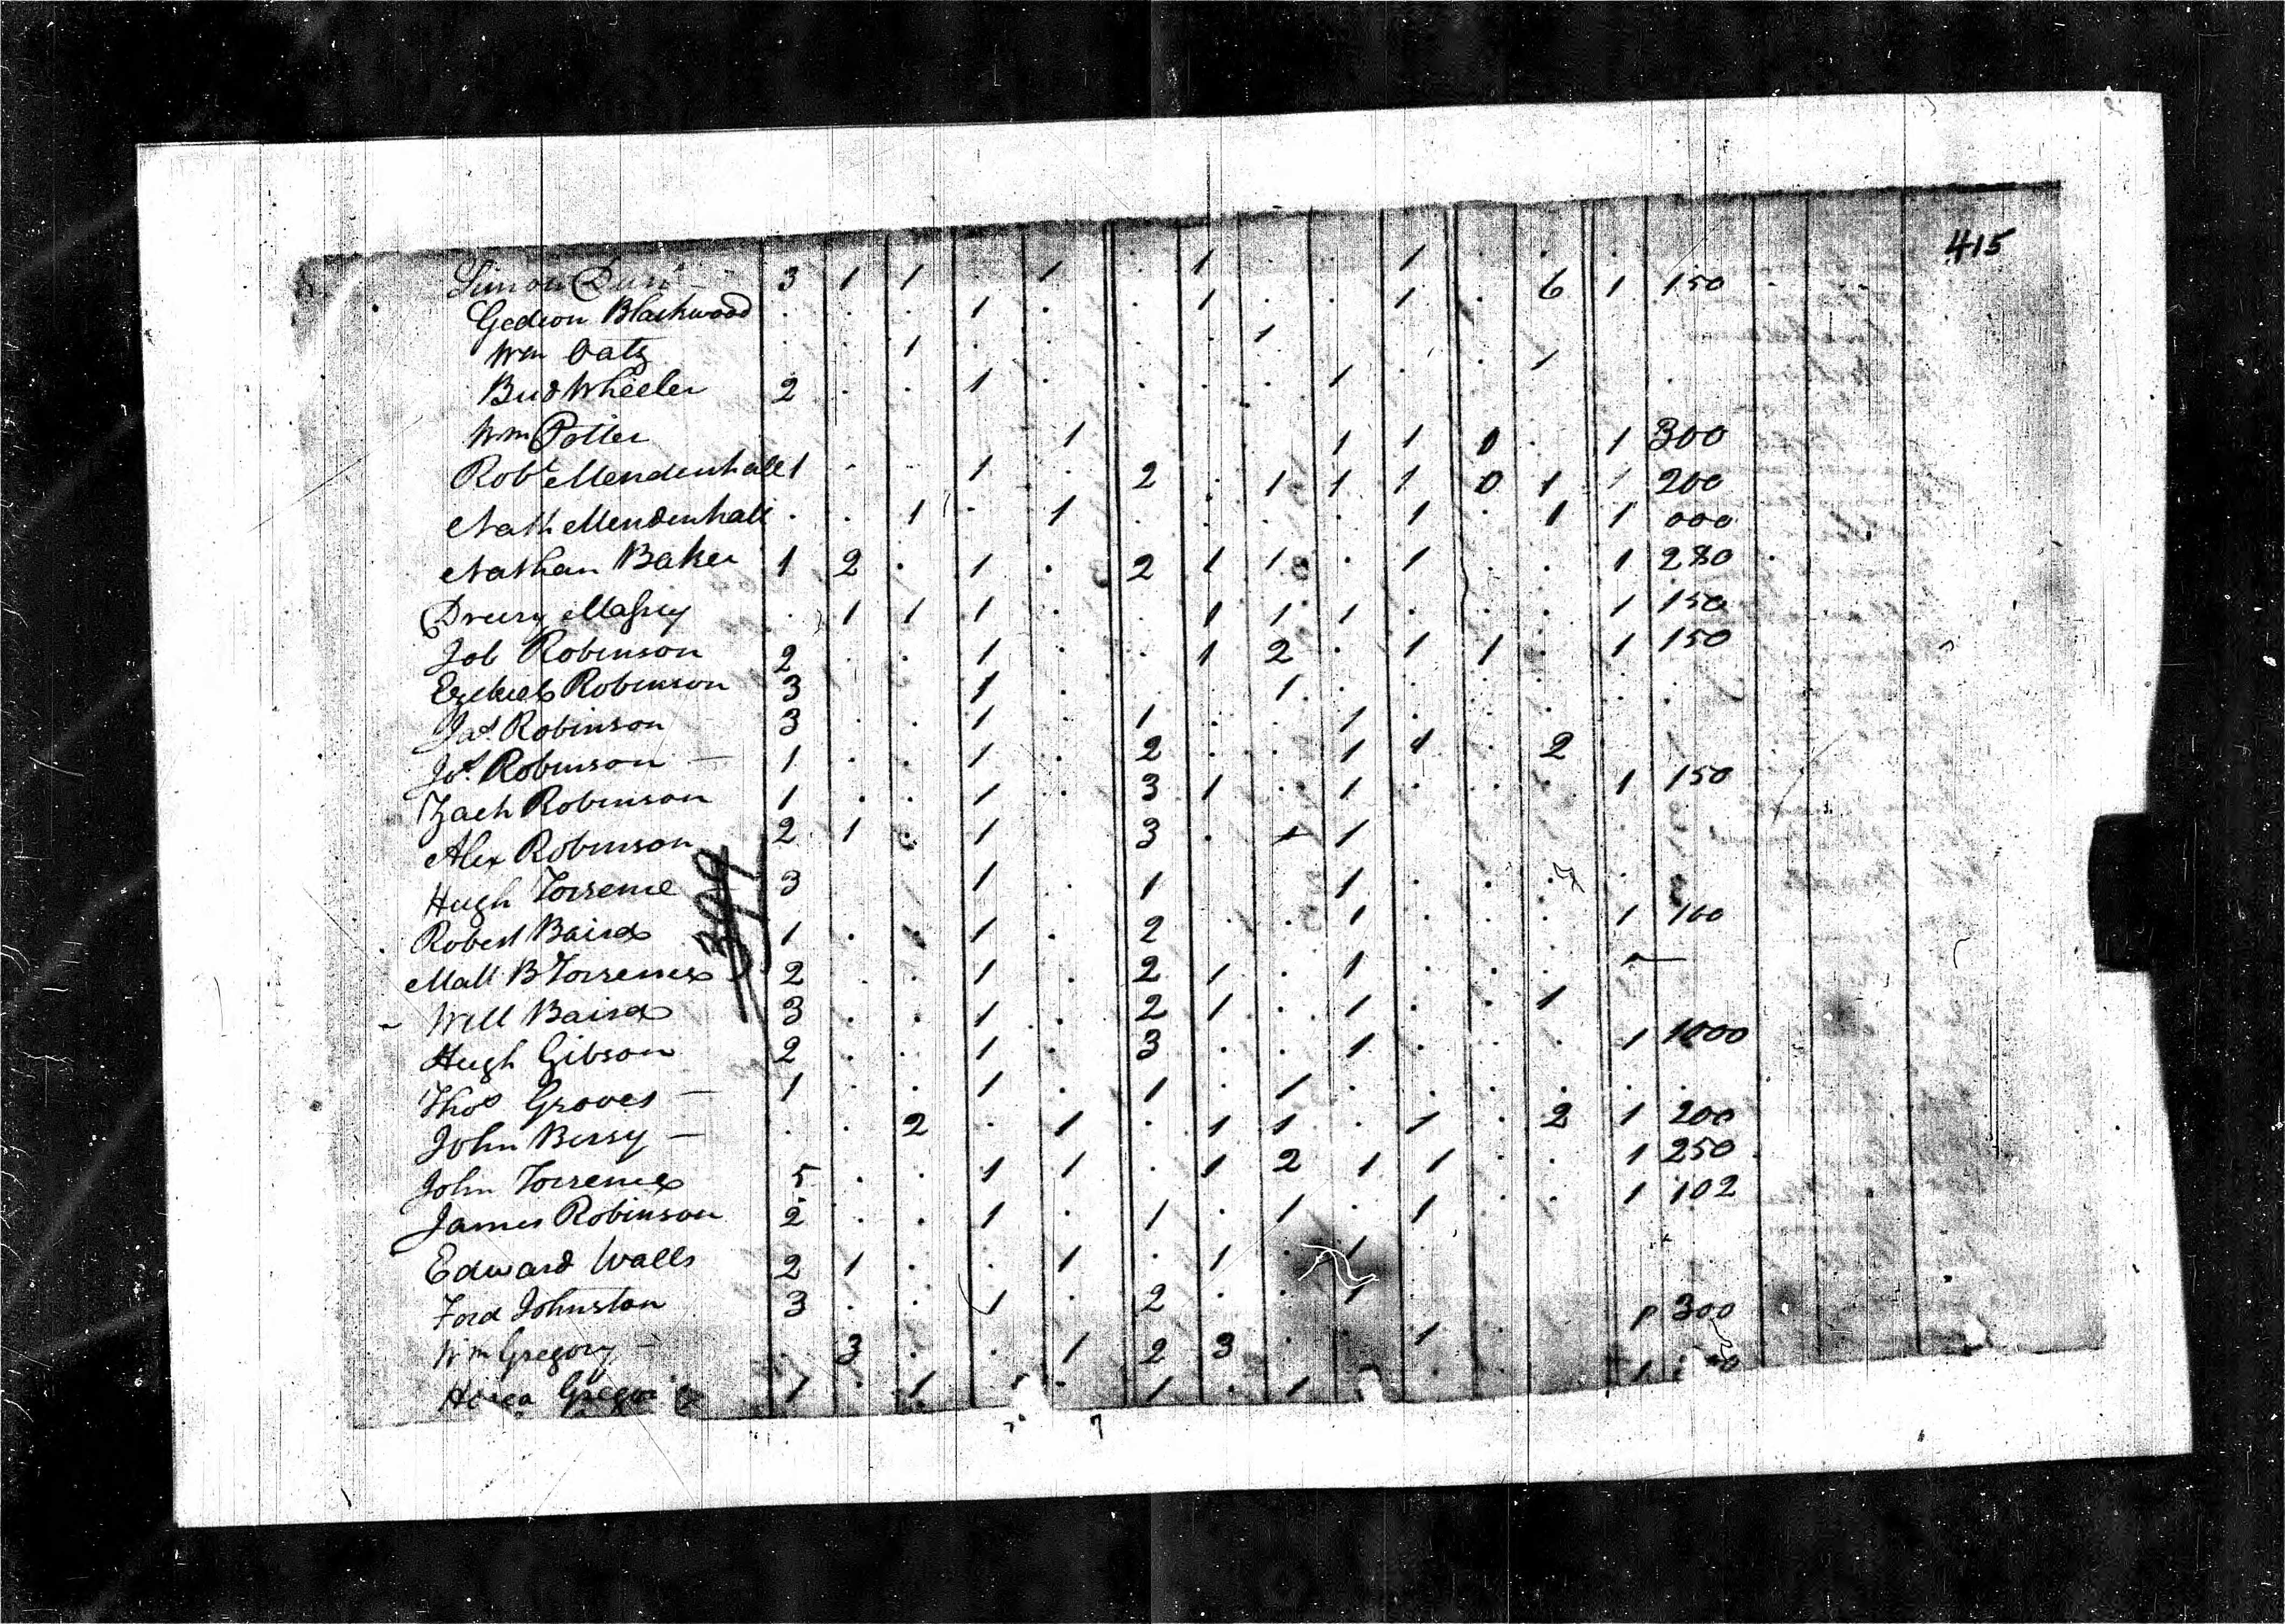 415
Simon Dun 3 1 1 . 1 . 1 . . 1 . .
Gedion Blackwood . . . 1 . . 1 . . 1 . 6 1 150
Wm Oatz . . 1 . . . . 1
Bud Wheeler 2 . . 1 . . . . 1 . . 1
Wm Potter 1 1 1 0 . 1 300
Robt Mendenhall 1 . . 1 . 2 . 1 1 1 0 1 1 200
Nath Mendenhall . . 1 . 1 . . . . 1 . 1 1 000
Nathan Baker 1 2 . 1 . 2 1 1 . 1 . . 1 280
Drury Massey . 1 1 1 . . 1 1 1 . . . 1 150
Job Robinson 2 . . 1 . . 1 2 . 1 1 . 1 150
Ezekiel Robinson 3 1 . . . 1 . . . . . .
Jas Robinson 3 . . 1 . 1 . . 1 .
Jos Robinson 1 . . 1 . 2 . . 1 1 . 2
Zach Robinson 1 . . 1 . 3 1 . 1 . . . 1 150
Alex Robinson 2 1 . 1 3 . 1 1
399
Hugh Torrence 3 1 . 1 1 . . .
Robert Baird 1 . . 1 . 2 . . 1 . . . 1 100
Matt B Torrence 2 . . 1 . 2 1 . 1 . . .
Will Baird 3 . . 1 . 2 1 . 1 . . 1
Hugh Gibson 2 . . 1 . 3 . . 1 . . . 1 1000
Thos Groves 1 . . 1 . 1 . 1 . . . . . .
John Berry . . 2 . 1 . 1 1 . 1 . 2 1 200
John Torrence 5 . . 1 1 . 1 2 1 1 . . 1 250
James Robinson 2 . . 1 . 1 . 1 . 1 . . 1 102
Edward Walls 2 1 . . 1 . 1 . 1
Ford Johnston 3 . . 1 . 2 . . 1
Wm Gregory . 3 . . 1 2 3 . . 1 . 300
1 . 1 . 1 . 1